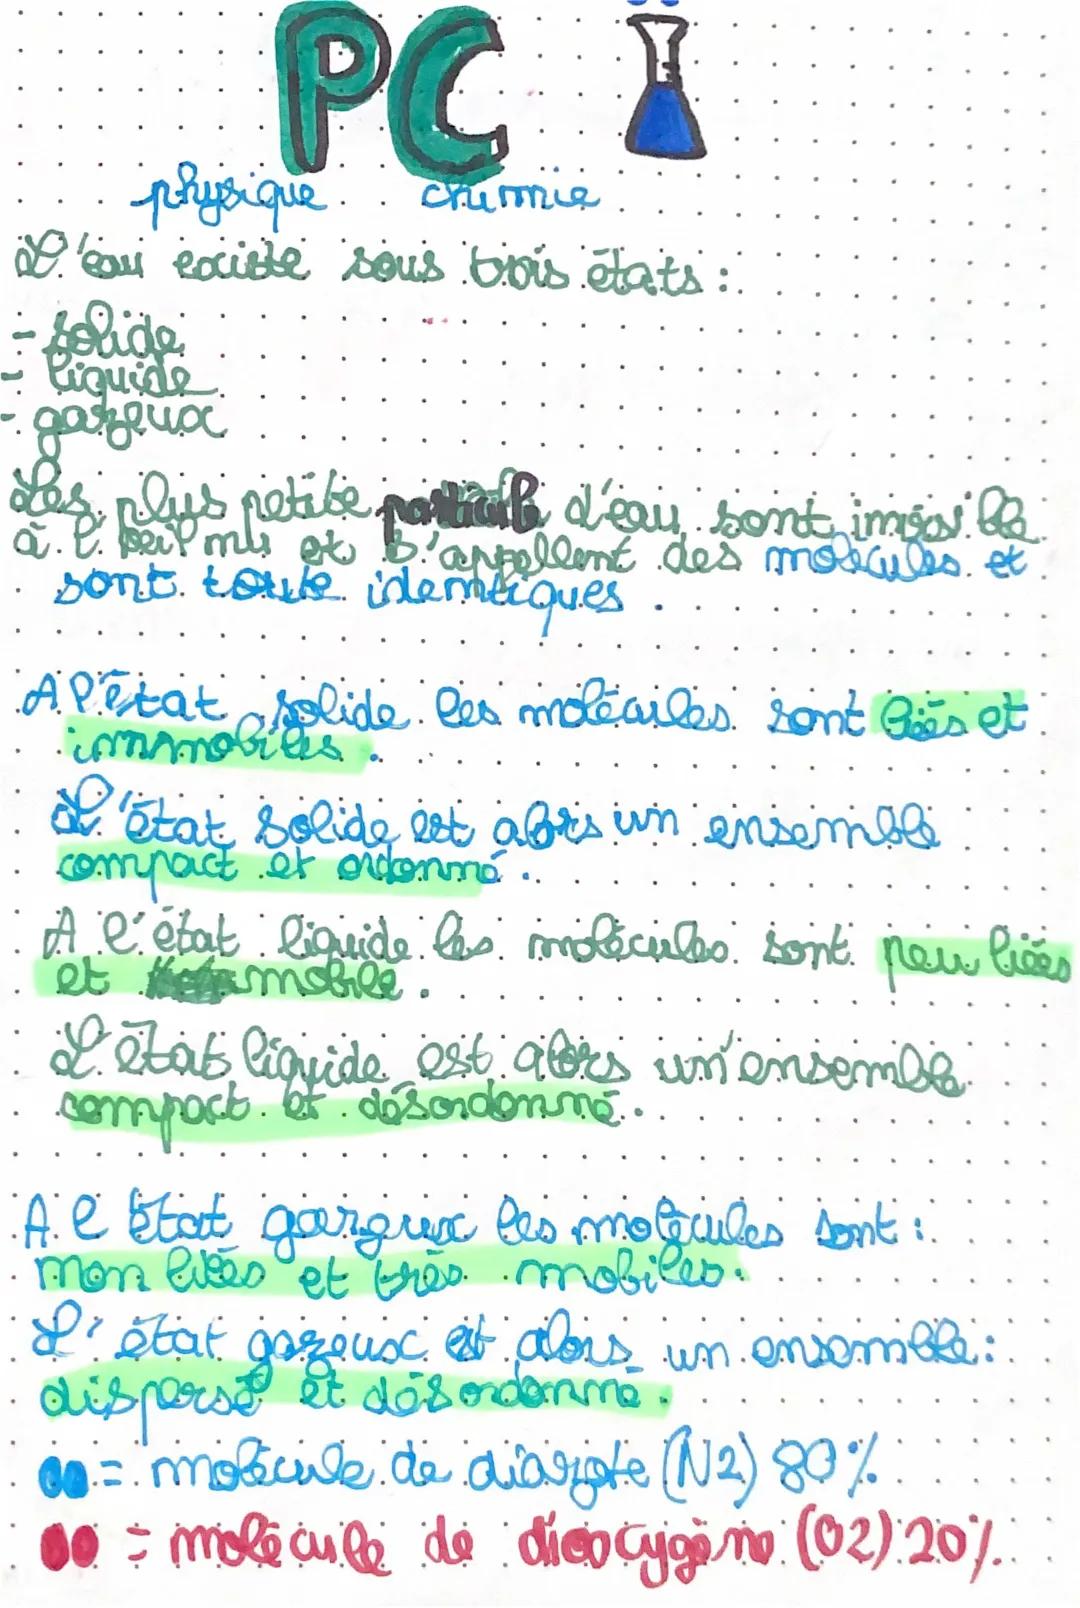 PC
physique chimie
L'eau existe sous trois états :
- solide
- liquide
- gazeux
Les plus petite particule d'eau sont invisible
à l'oeil nu et s'appellent des molécules et
sont toute identiques.
A l'état solide les molécules sont liés et
immobiles.
L'état solide est alors un ensemble
compact et ordonné.
A l'état liquide les molécules sont peu liées
et mobile.
L'état liquide est alors un ensemble
compact et désordonné.
A l'état gazeux les molécules sont :
non liées et très mobiles.
L'état gazeux est alors un ensemble :
dispersé et désordonné.
= molécule de diazote (N2) 80%
= molécule de dioxygène (O2) 20%